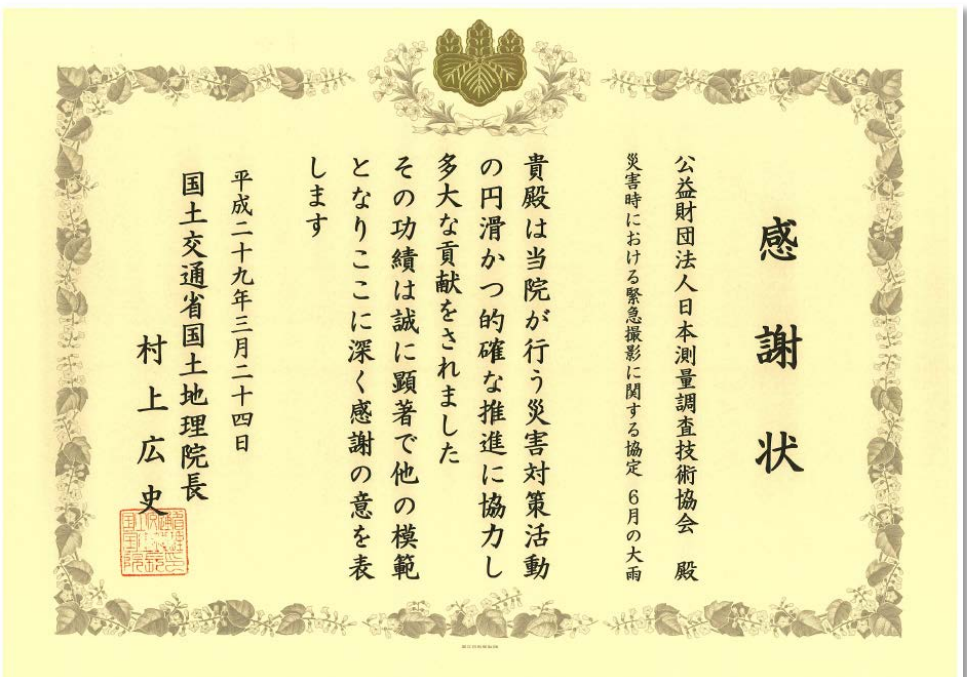 感謝状
公益財団法人日本測量調査技術協会 殿
災害時における緊急撮影に関する協定 6月の大雨
貴殿は当院が行う災害対策活動
の円滑かつ的確な推進に協力し
多大な貢献をされました
その功績は誠に顕著で他の模範
となりここに深く感謝の意を表
します
平成二十九年三月二十四日
国土交通省国土地理院長
村上広史